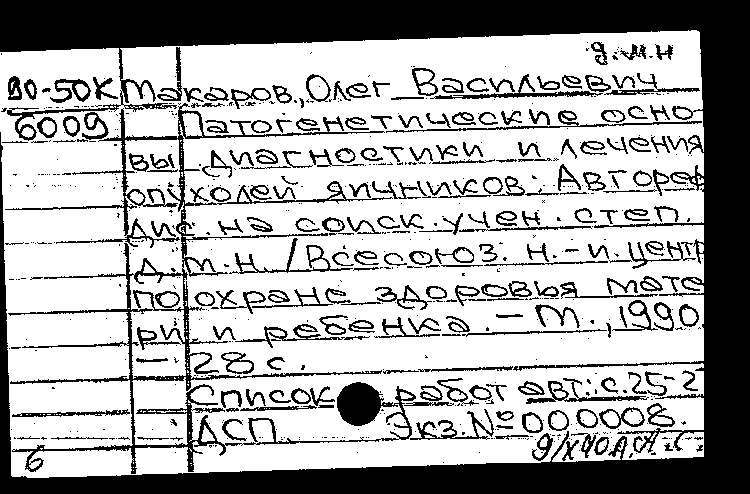 д.м.н
90-50К Макаров, Олег Васильевич
6009 Патогенетические осно-
вы диагностики и лечения
опухолей яичников: Автореф
дис. на соиск. учен. степ.
д.м.н. /Всесоюз. н.-и. центр
по охране здоровья мате
ри и ребенка. - М., 1990.
- 28 с.
Список работ авт.: с. 25-2
ДСП. Экз. № 000008.
6